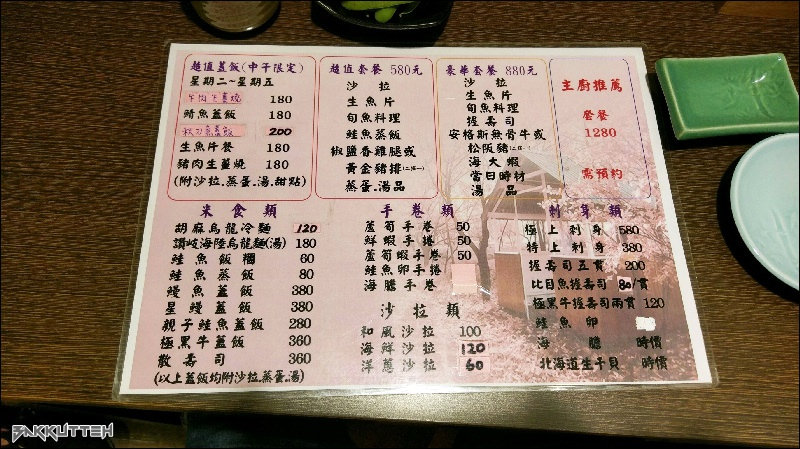 超值蓋飯(中午限定)
星期二~星期五
牛肉生薑燒 180
鯖魚蓋飯 180
秋刀魚蓋飯 200
生魚片餐 180
豬肉生薑燒 180
(附沙拉.蒸蛋.湯.甜點)
超值套餐 580元
沙拉
生魚片
旬魚料理
鮭魚蒸飯
椒鹽香雞腿或
黃金豬排(二擇一)
蒸蛋.湯品
豪華套餐 880元
沙拉
生魚片
旬魚料理
握壽司
安格斯無骨牛或
松阪豬(二擇一)
海大蝦
當日時材
湯品
主廚推薦
套餐
1280
需預約
米食類
胡麻烏龍冷麵 120
讚岐海陸烏龍麵(湯) 180
鮭魚飯糰 60
鮭魚蒸飯 80
鰻魚蓋飯 380
星鰻蓋飯 380
親子鮭魚蓋飯 280
極黑牛蓋飯 360
散壽司 360
(以上蓋飯均附沙拉.蒸蛋.湯)
手卷類
蘆筍手卷 50
鮮蝦手捲 50
蘆筍蝦手卷 50
鮭魚卵手捲
海膽手卷
沙拉類
和風沙拉 100
海鮮沙拉 120
洋蔥沙拉 60
刺身類
極上刺身 580
特上刺身 380
握壽司五貫 200
比目魚握壽司 80/貫
極黑牛握壽司兩貫 120
鮭魚卵
海膽 時價
北海道生干貝 時價
BAKKUTTEH